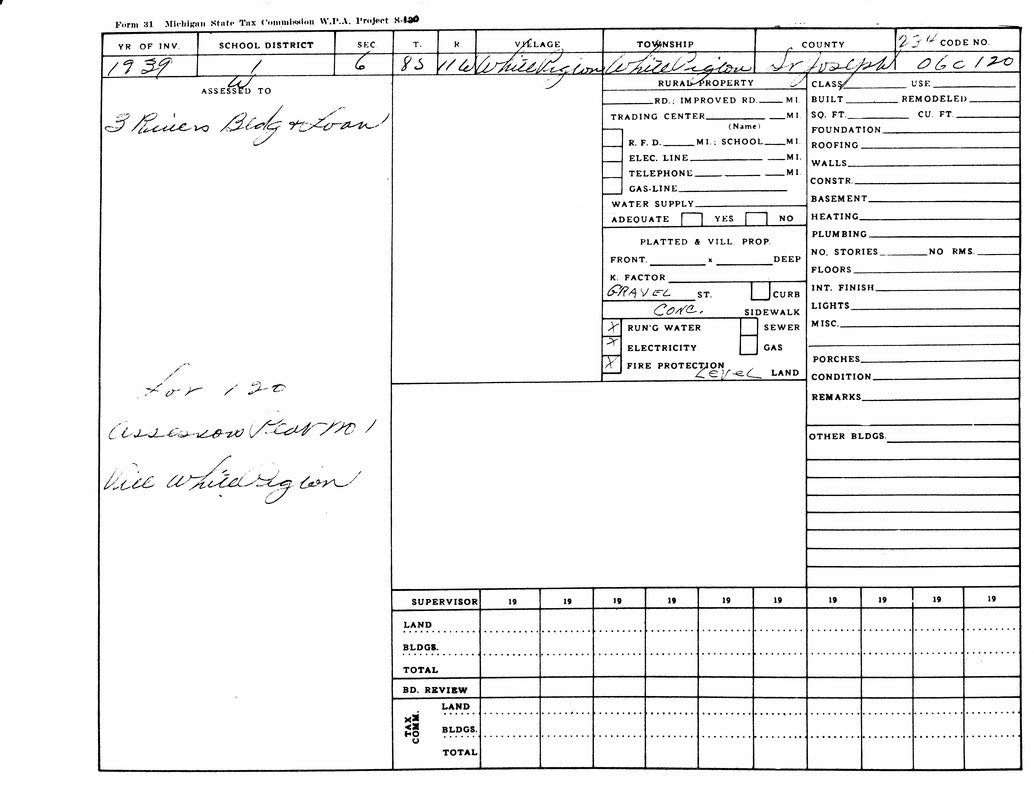 Form 31 Michigan State Tax Commission W.P.A. Project S-120
YR OF INV. SCHOOL DISTRICT SEC T. R VILLAGE TOWNSHIP COUNTY 234 CODE NO.
1939 1 6 8S 11W White Pigion White Pigion St Joseph 06C 120
W
ASSESSED TO
3 Rivers Bldg & Loan
Lot 120
Assessors Plat No 1
Vill White Pigion
RURAL PROPERTY
RD.; IMPROVED RD. MI.
TRADING CENTER MI.
(Name)
R. F. D. MI.; SCHOOL MI.
ELEC. LINE MI.
TELEPHONE MI.
GAS-LINE
WATER SUPPLY
ADEQUATE YES NO
PLATTED & VILL PROP.
FRONT. x DEEP
K. FACTOR
GRAVEL ST. CURB
CONC. SIDEWALK
X RUN'G WATER SEWER
X ELECTRICITY GAS
X FIRE PROTECTION
LEVEL LAND
CLASS USE
BUILT REMODELED
SQ. FT. CU. FT.
FOUNDATION
ROOFING
WALLS
CONSTR.
BASEMENT
HEATING
PLUMBING
NO. STORIES NO RMS.
FLOORS
INT. FINISH
LIGHTS
MISC.
PORCHES
CONDITION
REMARKS
OTHER BLDGS.
SUPERVISOR 19 19 19 19 19 19 19 19 19 19
LAND
BLDGS.
TOTAL
BD. REVIEW
TAX COMM.
LAND
BLDGS.
TOTAL